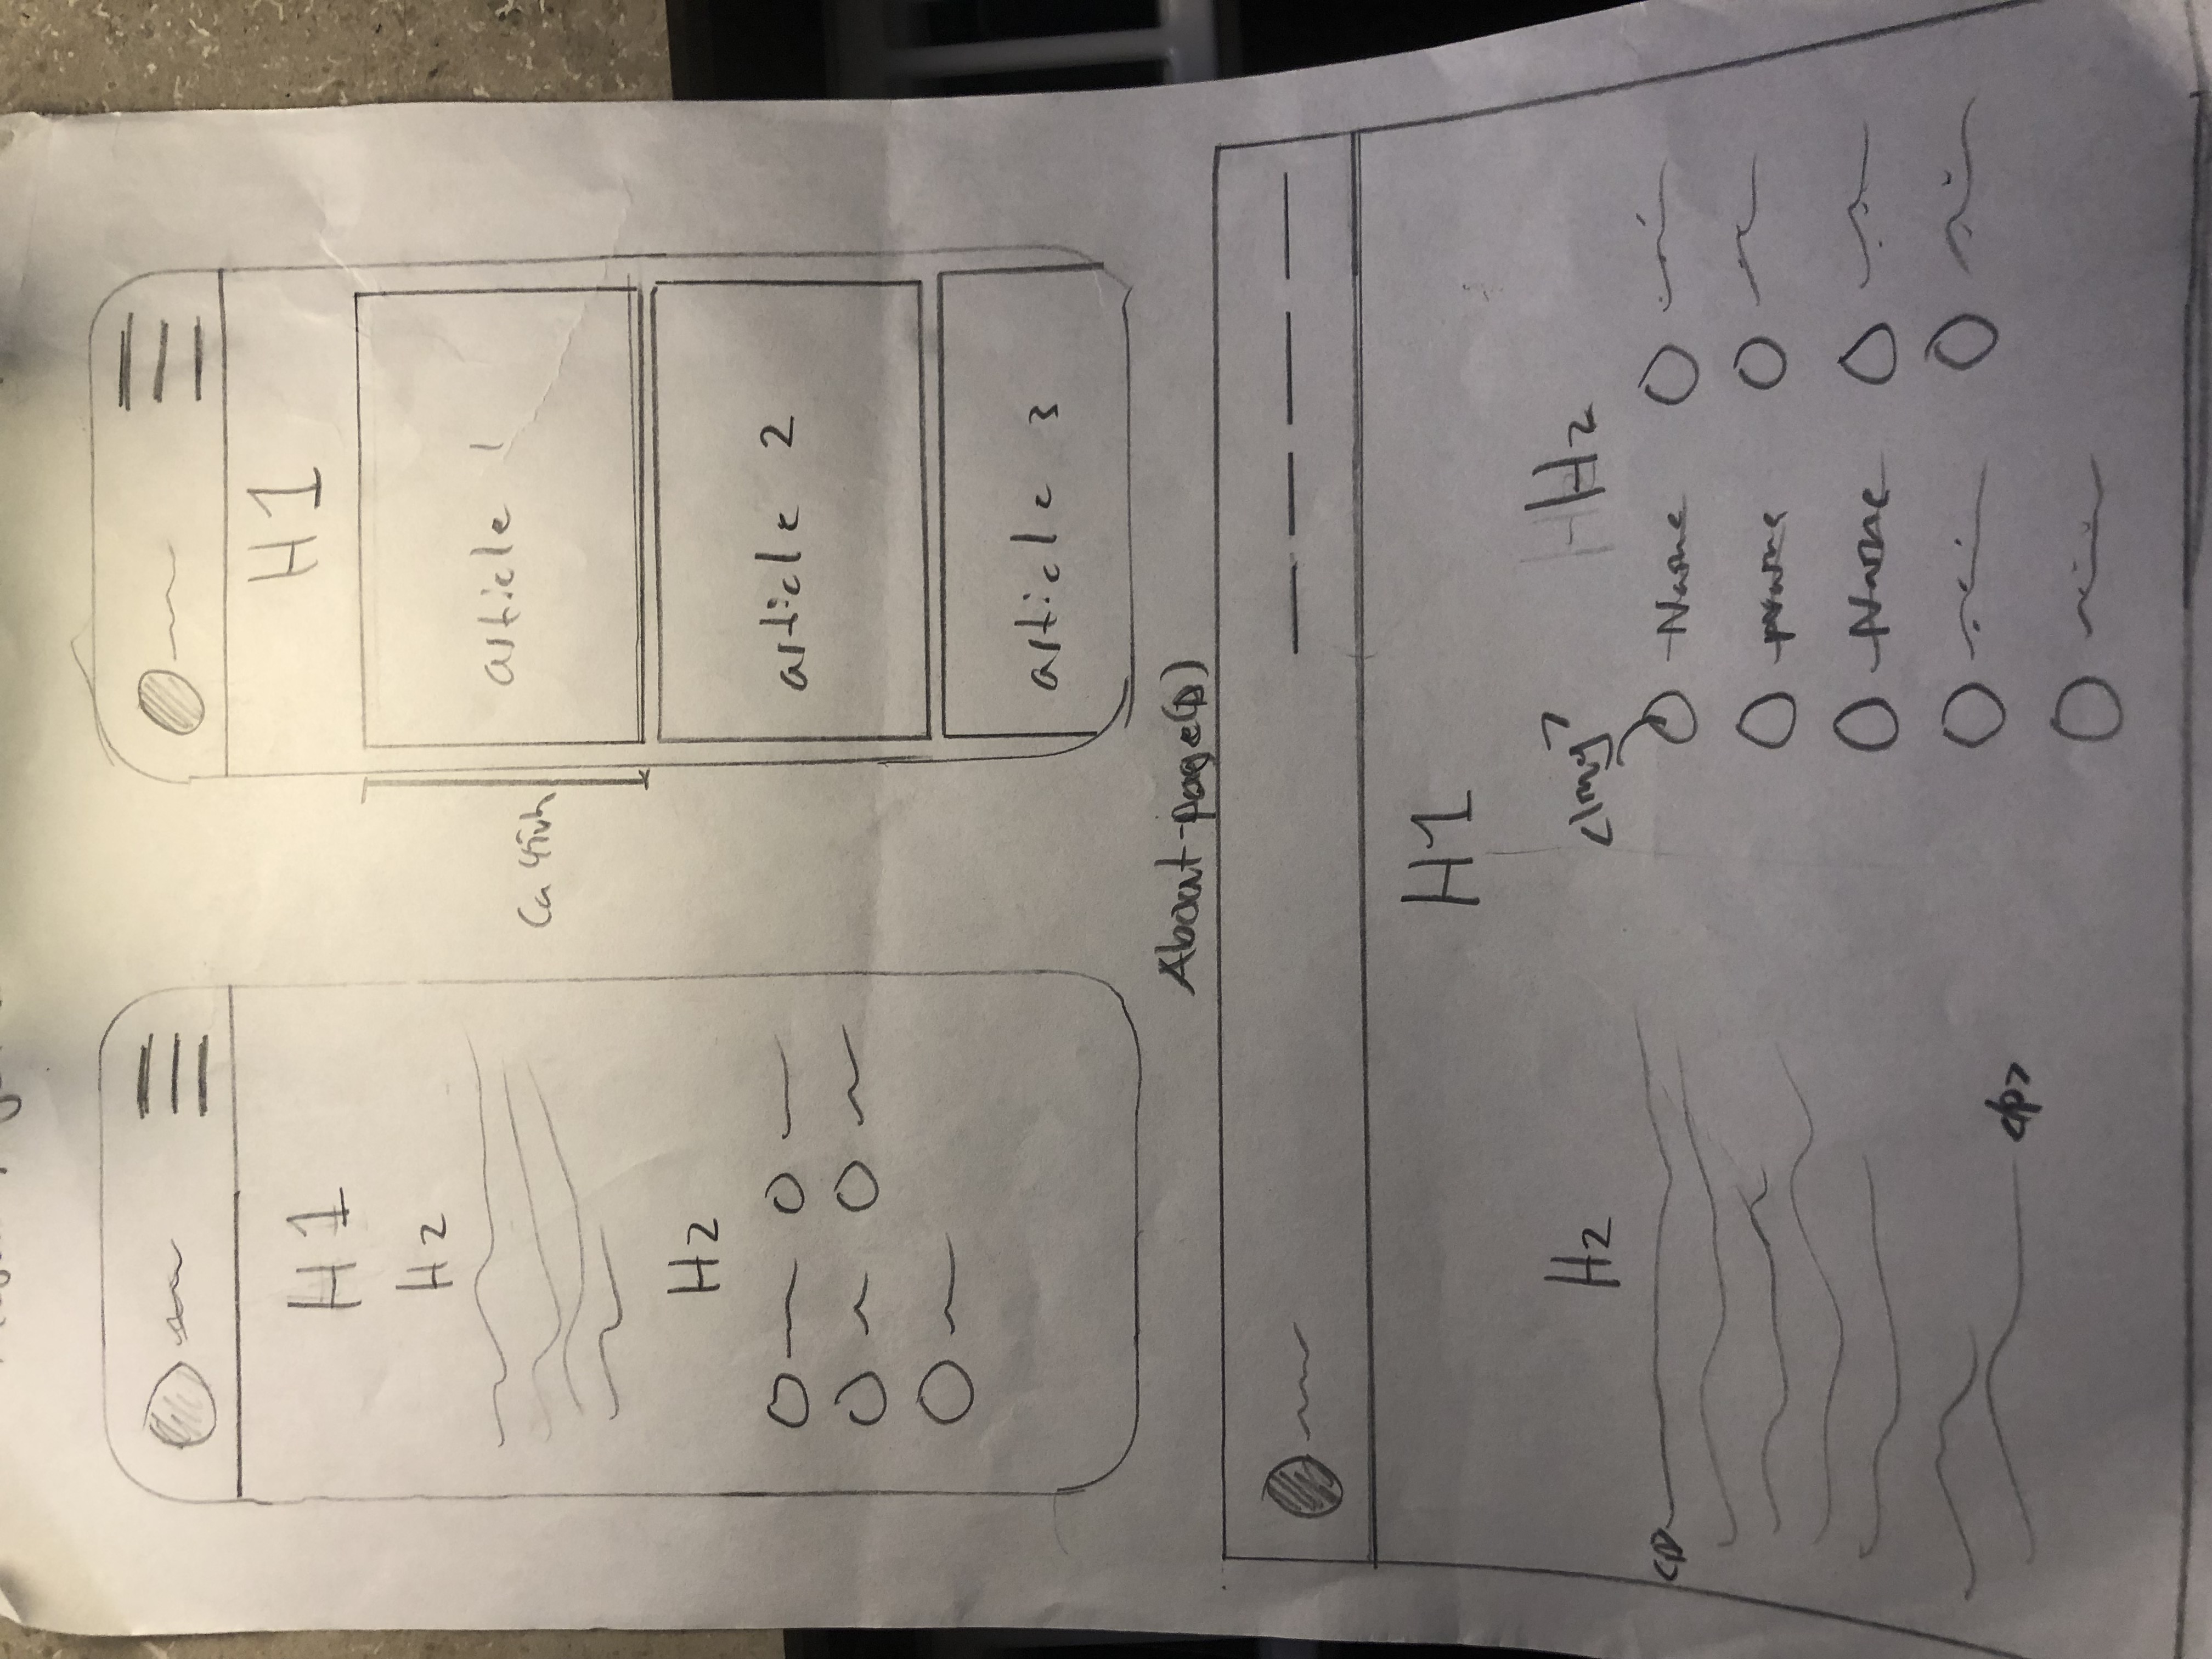 H1
H2
H2
H1
article 1
Ca
article 2
article 3
About-page(D)
H1
H2
<Img>
H2
<p>
Name
Name
Name
</p>